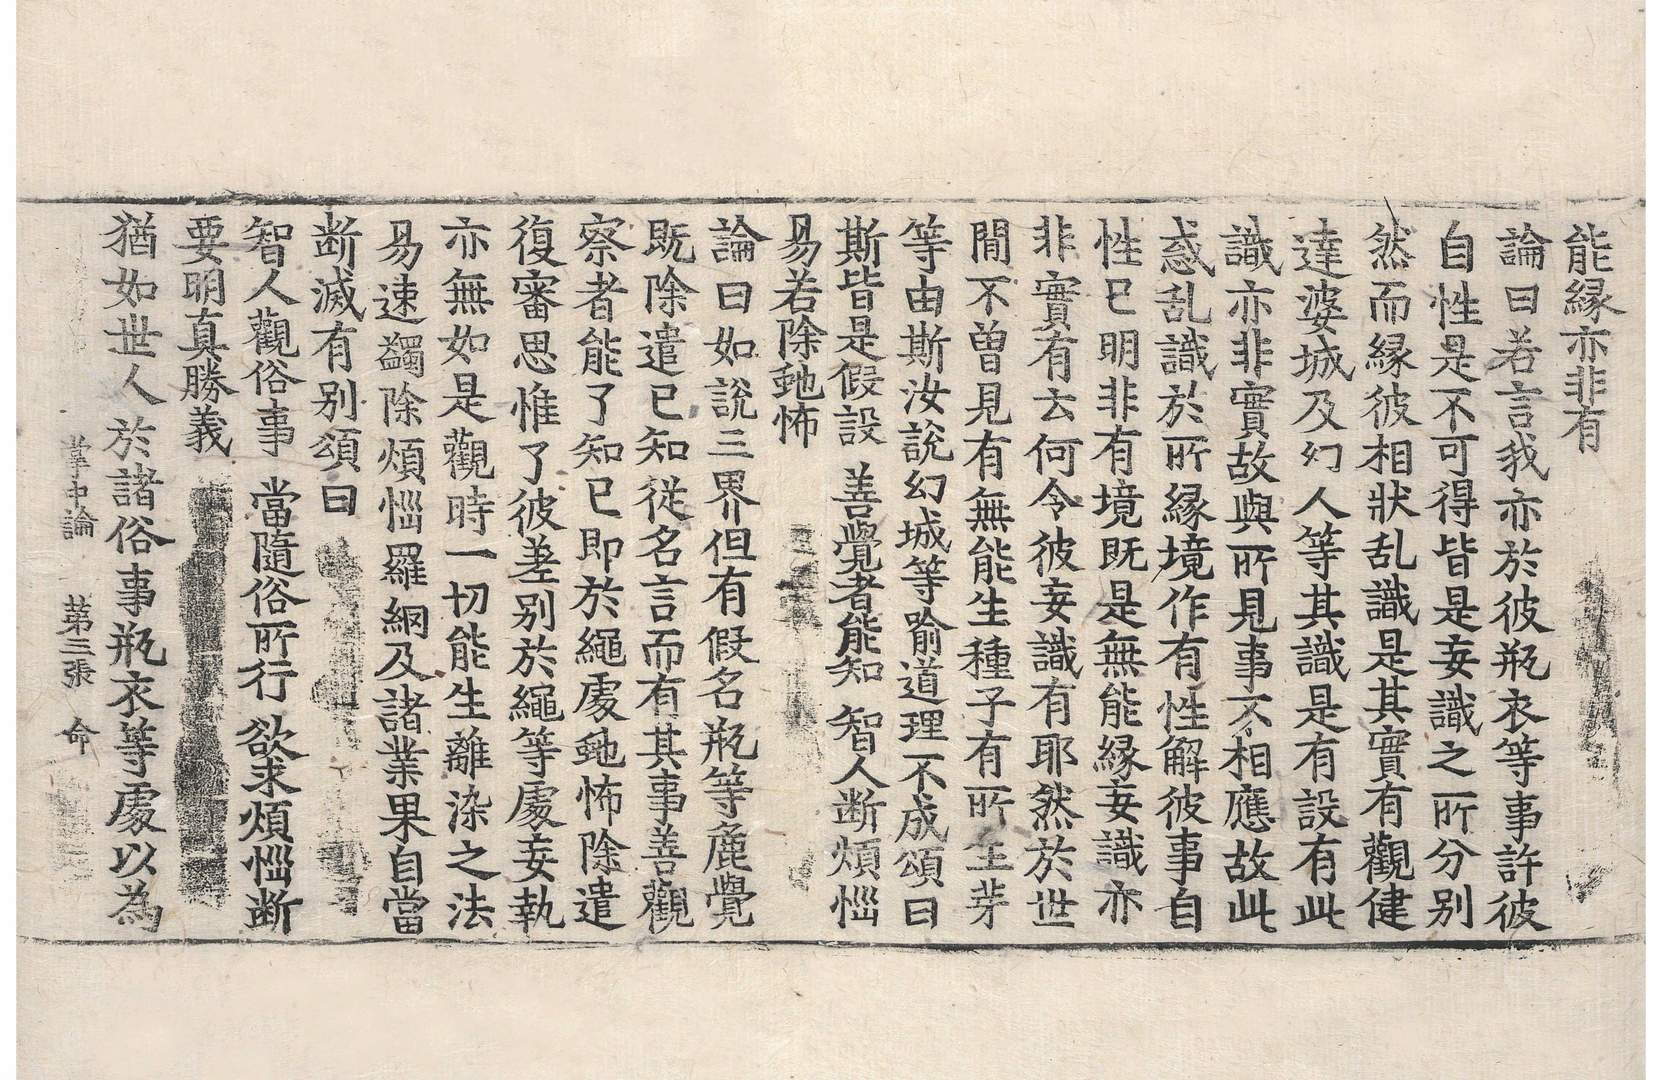 能縁亦非有
論曰若言我亦於彼瓶衣等事許彼
自性是不可得皆是妄識之所分別
然而縁彼相狀乱識是其實有觀健
達婆城及幻人等其識是有設有此
識亦非實故與所見事不相應故此
惑乱識於所縁境作有性解彼事自
性已明非有境既是無能縁妄識亦
非實有云何令彼妄識有耶然於世
間不曽見有無能生種子有所生芽
等由斯汝說幻城等喻道理不成頌曰
斯皆是假設 善覺者能知 智人断煩惱
易若除虵怖
論曰如說三界但有假名瓶等麁覺
既除遣已知從名言而有其事善觀
察者能了知已即於繩處虵怖除遣
復審思惟了彼差别於繩等處妄執
亦無如是觀時一切能生離染之法
易速蠲除煩惱羅網及諸業果自當
断滅有别頌曰
智人觀俗事 當隨俗所行 欲求煩惱断
要明真勝義
猶如世人於諸俗事瓶衣等處以為
掌中論 苐三張 命